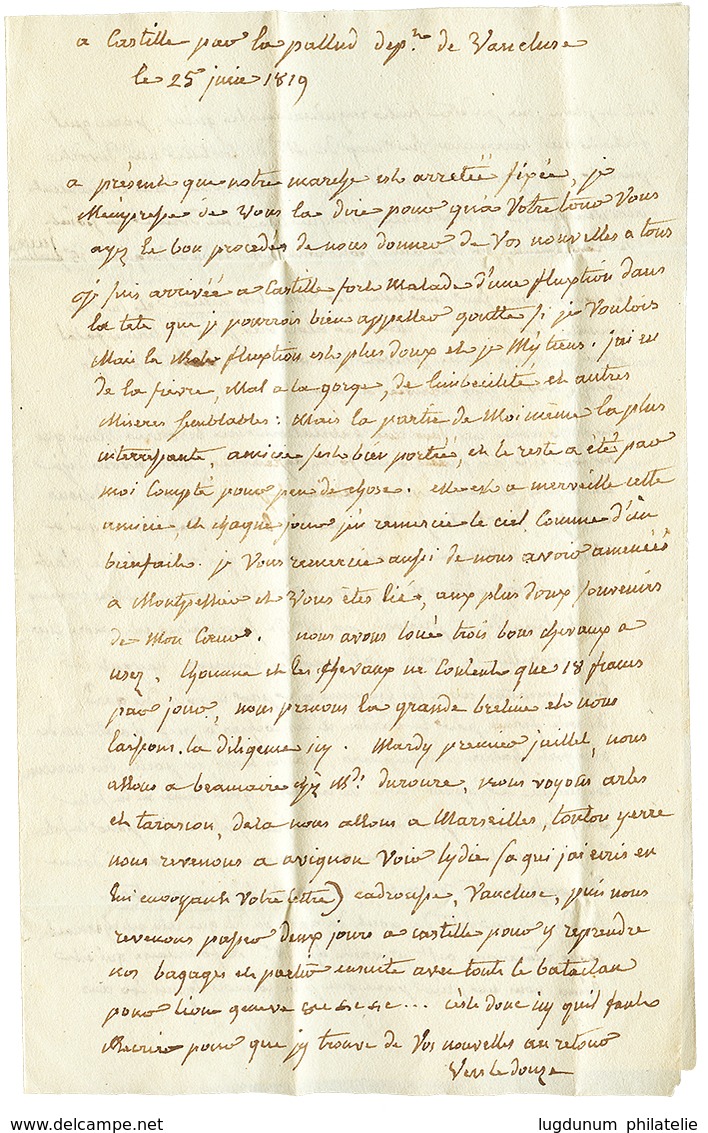 a Castille par la pallud dept. de Vaucluse
le 25 juin 1819
a présent que notre marche est arretée fixée, je
m'empresse de vous la dire pour qu'a votre tour vous
ayez le bon procedés de nous donner de vos nouvelles a tous
je suis arrivée a Castille fort malade d'une fluxtion dans
la tete que je pourrois bien appeller goutte si je voulois
mais le mot fluxtion est plus doux et je m'y tiens. j'ai eu
de la fievre, mal a la gorge, de l'imbecilité et autres
miseres semblables: mais la partie de moi même la plus
interessante, s'est bien portée, et le reste a été par
moi compté pour peu de chose. elle est a merveille cette
et chaque jour j'en remercie le ciel comme d'un
bienfait. je vous remercie aussi de nous avoir amenées
a Montpellier et vous êtes lié, aux plus doux souvenirs
de mon Cœur. nous avons loué trois bons chevaux a
usez, l'homme et les chevaux ne content que 18 francs
par jour, nous prenons la grande berline et nous
laissons la diligence icy. Mardy premier juillet, nous
allons a beaucaire chez Md. duroure, nous voyons arles
et tarascon, dela nous allons a Marseilles, toulon yerre
nous revenons a avignon voir lydie (a qui j'ai ecris en
lui envoyant votre lettre) cadrousse, Vaucluse, puis nous
revenons passer deux jours a castille pour y reprendre
nos bagages et partir ensuite avec tout le bataillon
pour lion geneve &c &c &c ... c'est donc icy qu'il faut
m'ecrire pour que j'y trouve de vos nouvelles au retour
Vers le douze
www.delcampe.net
lugdunum philatelie